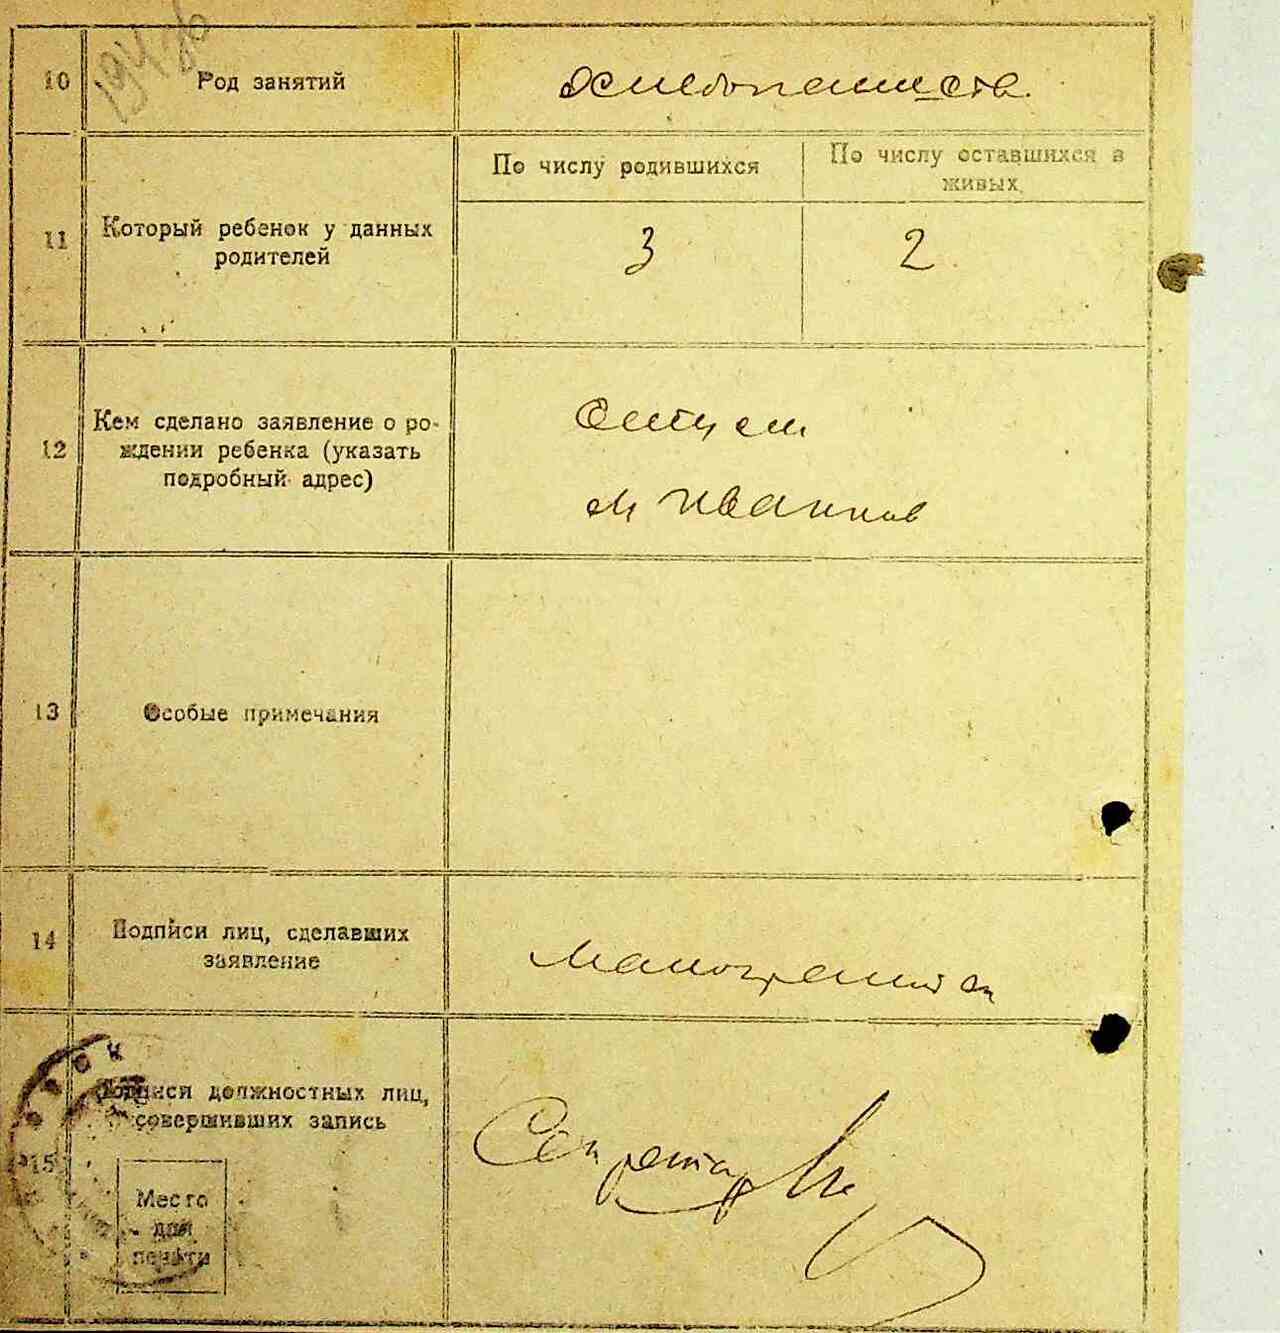 10
Род занятий
хлебопашеств
11
Который ребенок у данных
родителей
По числу родившихся
По числу оставшихся в
живых
3
2
12
Кем сделано заявление о ро-
ждении ребенка (указать
подробный адрес)
Отцем
13
Особые примечания
14
Подписи лиц, сделавших
заявление
15
Подписи должностных лиц,
совершивших запись
Место
для
печати
Секретарь